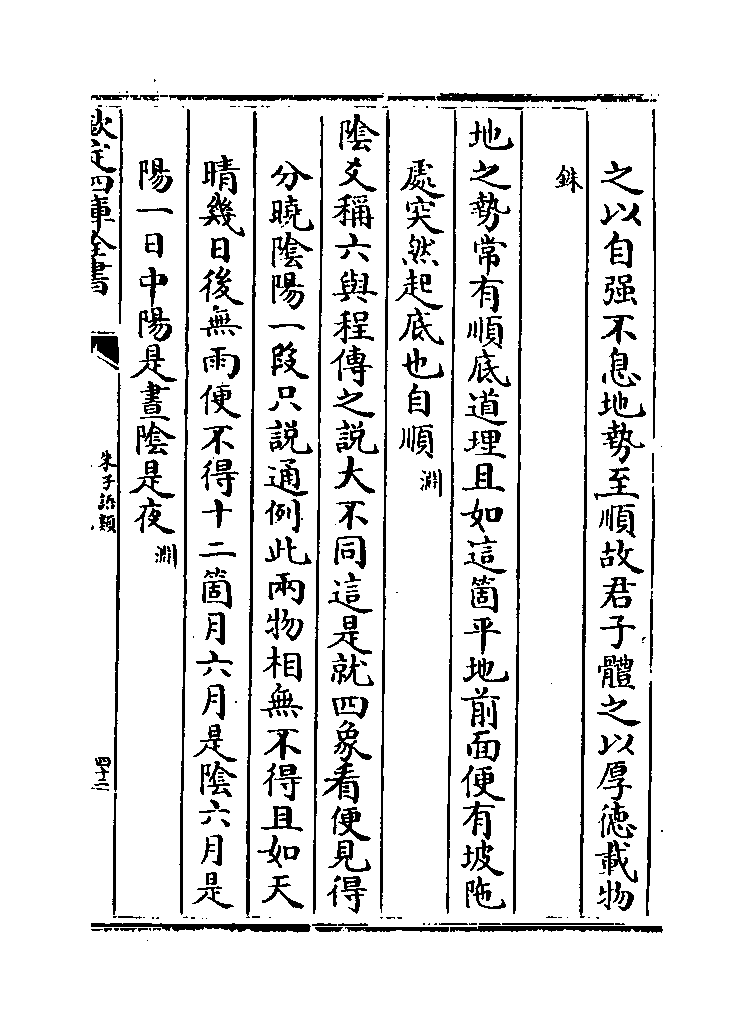 之以自强不息地勢至順故君子體之以厚徳載物
銖
地之勢常有順底道理且如這箇平地前面便有坡陁
處突然起底也自順淵
陰爻稱六與程傳之説大不同這是就四象看便見得
分曉陰陽一段只説通例此兩物相無不得且如天
晴幾日後無雨便不得十二箇月六月是陰六月是
陽一日中陽是晝陰是夜淵
欽定四庫全書
朱子語類
四十二